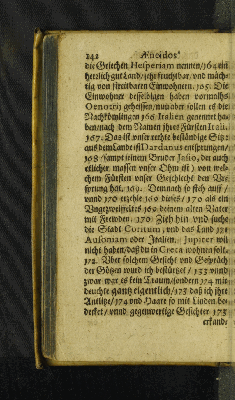 242 Æneidos
die Griechen Hesperiam nennen/164 ein
hertzlich gut Land/sehr fruchtbar/vnd mäch-
tig von streitbaren Einwohnern. 165. Die
Einwohner desselbigen haben vormahls
Oenotrij geheissen/nun aber sollen es die
Nachkömlingen 166 Italien genennet ha-
ben/nach dem Namen ihres Fürsten Itali.
167. Das ist vnser rechte beständige Sitz:
aus dem Lande ist Dardanus entsprungen/
168 /sampt seinem Bruder Jasio, der auch
etlicher massen vnser Ohm ist) von wel-
chem Fürsten vnser Geschlecht den Vr-
sprung hat. 169. Demnach so steh auff/
vnnd 170 erzehle 169 dieses/ 170 als ein
Vngezweiffeltes 169 deinem alten Vater
mit Frewden. 170 Zieh hin vnd suche
die Stadt Coritum, vnd das Land 171
Ausoniam oder Italien. Jupiter wil
nicht haben/daß du in Creta wohnen solt.
172. Vber solchem Gesicht vnd Gespräch
der Götzen wurd ich bestürtzet / 173 vnnd
zwar war es kein Traum/sondern 174 mich
deuchte gantz eigentlich/175 daß ich ihre
Antlitz/174 vnd Haare so mit Binden be-
decket/vnnd gegenwertige Gesichter 175
erkand: